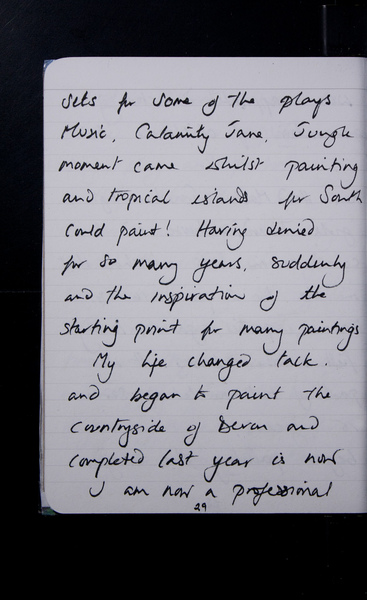 sets for some of the plays
Music, Calamity Jane, Jungle
moment came whilst painting
and tropical islands for South
could paint! Having denied
for so many years, suddenly
and the inspiration of the
starting point for many paintings
My life changed tack.
and began to paint the
countryside of Devon and
completed last year is now
I am now a professional
29